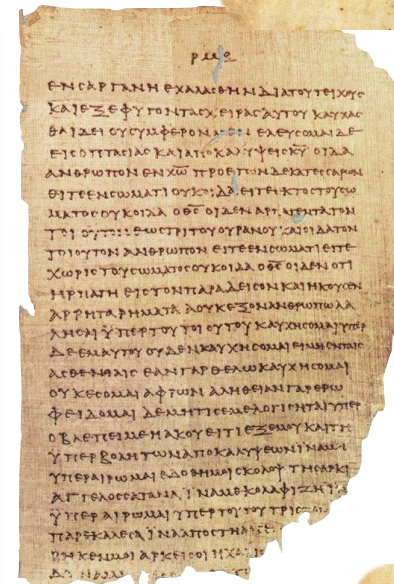 ΕΝ ϹΑΡΓΑΝΗ ΕΧΑΛΑϹΘΗΝ ΔΙΑ ΤΟΥ ΤΕΙΧΟΥϹ
ΚΑΙ ΕΞΕΦΥΓΟΝ ΤΑϹ ΧΕΙΡΑϹ ΑΥΤΟΥ ΚΑΥΧΑϹ
ΘΑΙ ΔΕΙ ΟΥ ϹΥΜΦΕΡΟΝ ΜΕΝ ΕΛΕΥϹΟΜΑΙ ΔΕ
ΕΙϹ ΟΠΤΑϹΙΑϹ ΚΑΙ ΑΠΟΚΑΛΥΨΕΙϹ Κ̅Υ̅ ΟΙΔΑ
ΑΝΘΡΩΠΟΝ ΕΝ Χ̅Ω̅ ΠΡΟ ΕΤΩΝ ΔΕΚΑΤΕϹϹΑΡΩΝ
ΕΙΤΕ ΕΝ ϹΩΜΑΤΙ ΟΥΚ ΟΙΔΑ ΕΙΤΕ ΕΚΤΟϹ ΤΟΥ ϹΩ
ΜΑΤΟϹ ΟΥΚ ΟΙΔΑ Ο Θ̅Ϲ̅ ΟΙΔΕΝ ΑΡΠΑΓΕΝΤΑ ΤΟΝ
ΤΟΙΟΥΤΟΝ ΕΩϹ ΤΡΙΤΟΥ ΟΥΡΑΝΟΥ ΚΑΙ ΟΙΔΑ ΤΟΝ
ΤΟΙΟΥΤΟΝ ΑΝΘΡΩΠΟΝ ΕΙΤΕ ΕΝ ϹΩΜΑΤΙ ΕΙΤΕ
ΧΩΡΙϹ ΤΟΥ ϹΩΜΑΤΟϹ ΟΥΚ ΟΙΔΑ Ο Θ̅Ϲ̅ ΟΙΔΕΝ ΟΤΙ
ΗΡΠΑΓΗ ΕΙϹ ΤΟΝ ΠΑΡΑΔΕΙϹΟΝ ΚΑΙ ΗΚΟΥϹΕΝ
ΑΡΡΗΤΑ ΡΗΜΑΤΑ Α ΟΥΚ ΕΞΟΝ ΑΝΘΡΩΠΩ ΛΑ
ΛΗϹΑΙ ΫΠΕΡ ΤΟΥ ΤΟΙΟΥΤΟΥ ΚΑΥΧΗϹΟΜΑΙ ΫΠΕΡ
ΔΕ ΕΜΑΥΤΟΥ ΟΥΔΕΝ ΚΑΥΧΗϹΟΜΑΙ ΕΙ ΜΗ ΕΝ ΤΑΙϹ
ΑϹΘΕΝΕΙΑΙϹ ΕΑΝ ΓΑΡ ΘΕΛΩ ΚΑΥΧΗϹΟΜΑΙ
ΟΥΚ ΕϹΟΜΑΙ ΑΦΡΩΝ ΑΛΗΘΕΙΑΝ ΓΑΡ ΕΡΩ
ΦΕΙΔΟΜΑΙ ΔΕ ΜΗ ΤΙϹ ΕΜΕ ΛΟΓΙϹΗΤΑΙ ΫΠΕΡ
Ο ΒΛΕΠΕΙ ΜΕ Η ΑΚΟΥΕΙ ΤΙ ΕΞ ΕΜΟΥ ΚΑΙ ΤΗ
ΫΠΕΡΒΟΛΗ ΤΩΝ ΑΠΟΚΑΛΥΨΕΩΝ ΪΝΑ ΜΗ
ΫΠΕΡΑΙΡΩΜΑΙ ΕΔΟΘΗ ΜΟΙ ϹΚΟΛΟΨ ΤΗ ϹΑΡΚΙ
ΑΓΓΕΛΟϹ ϹΑΤΑΝΑ ΪΝΑ ΜΕ ΚΟΛΑΦΙΖΗ ΪΝΑ
ΫΠΕΡΑΙΡΩΜΑΙ ΫΠΕΡ ΤΟΥΤΟΥ ΤΡΙϹ
ΠΑΡΕΚΑΛΕϹΑ ΪΝΑ ΑΠΟϹΤΗ
ΡΗΚΕΝ ΜΟΙ ΑΡΚΕΙ ϹΟΙ Η ΧΑΡΙϹ